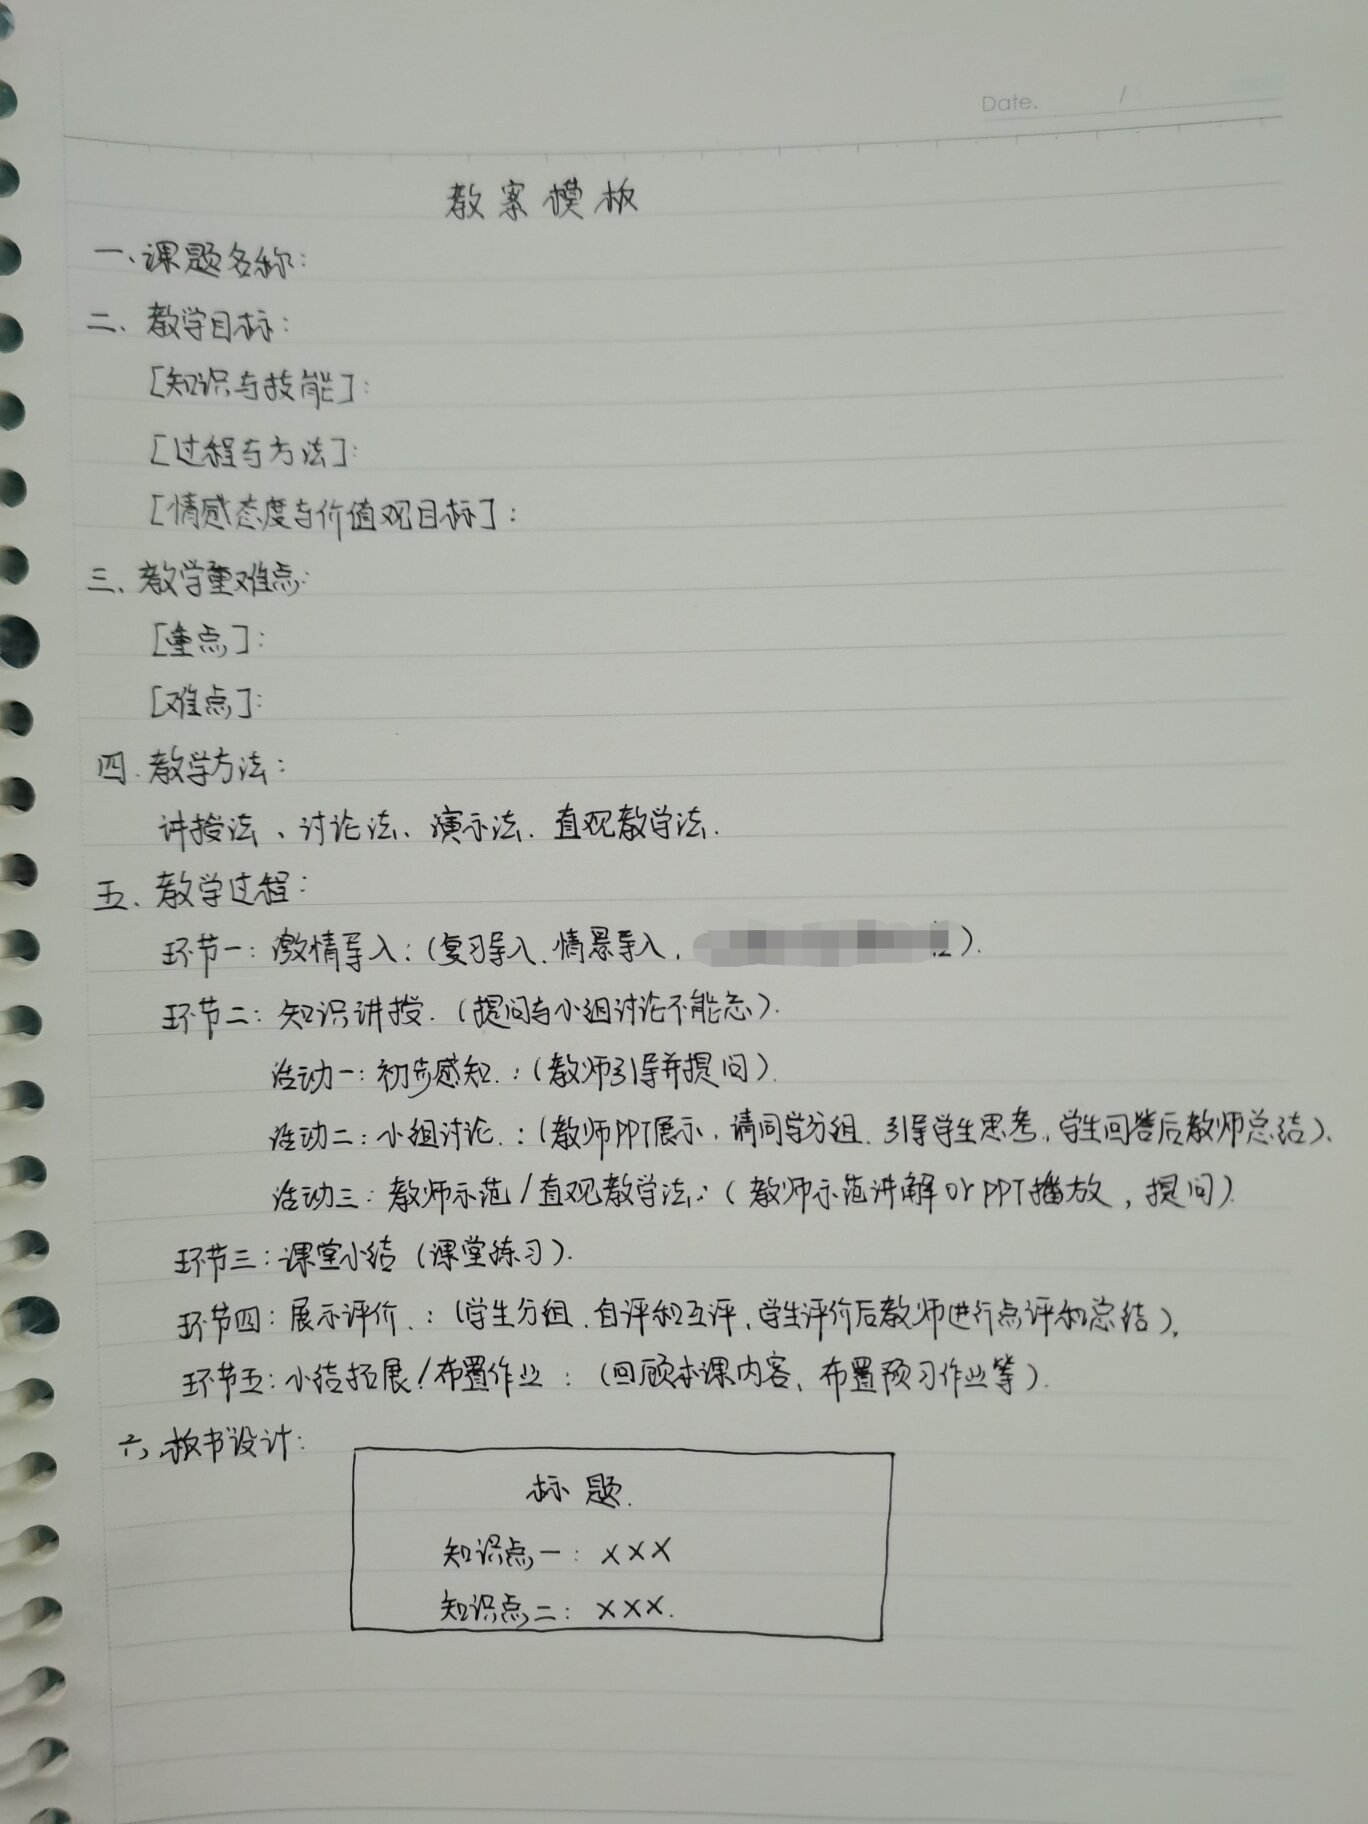 Date. /
教案模板
一、课题名称:
二、教学目标:
[知识与技能]:
[过程与方法]:
[情感态度与价值观目标]:
三、教学重难点:
[重点]:
[难点]:
四.教学方法:
讲授法、讨论法、演示法.直观教学法.
五、教学过程:
环节一:激情导入:(复习导入、情景导入, ).
环节二:知识讲授.(提问与小组讨论不能忘).
活动一:初步感知.:(教师引导并提问).
活动二:小组讨论.:(教师PPT展示,请同学分组、引导学生思考,学生回答后教师总结).
活动三:教师示范/直观教学法:(教师示范讲解or PPT播放,提问).
环节三:课堂小结(课堂练习).
环节四:展示评价.:(学生分组、自评和互评,学生评价后教师进行点评和总结).
环节五:小结拓展/布置作业:(回顾本课内容、布置预习作业等).
六、板书设计:
标题.
知识点一:×××
知识点二:×××.